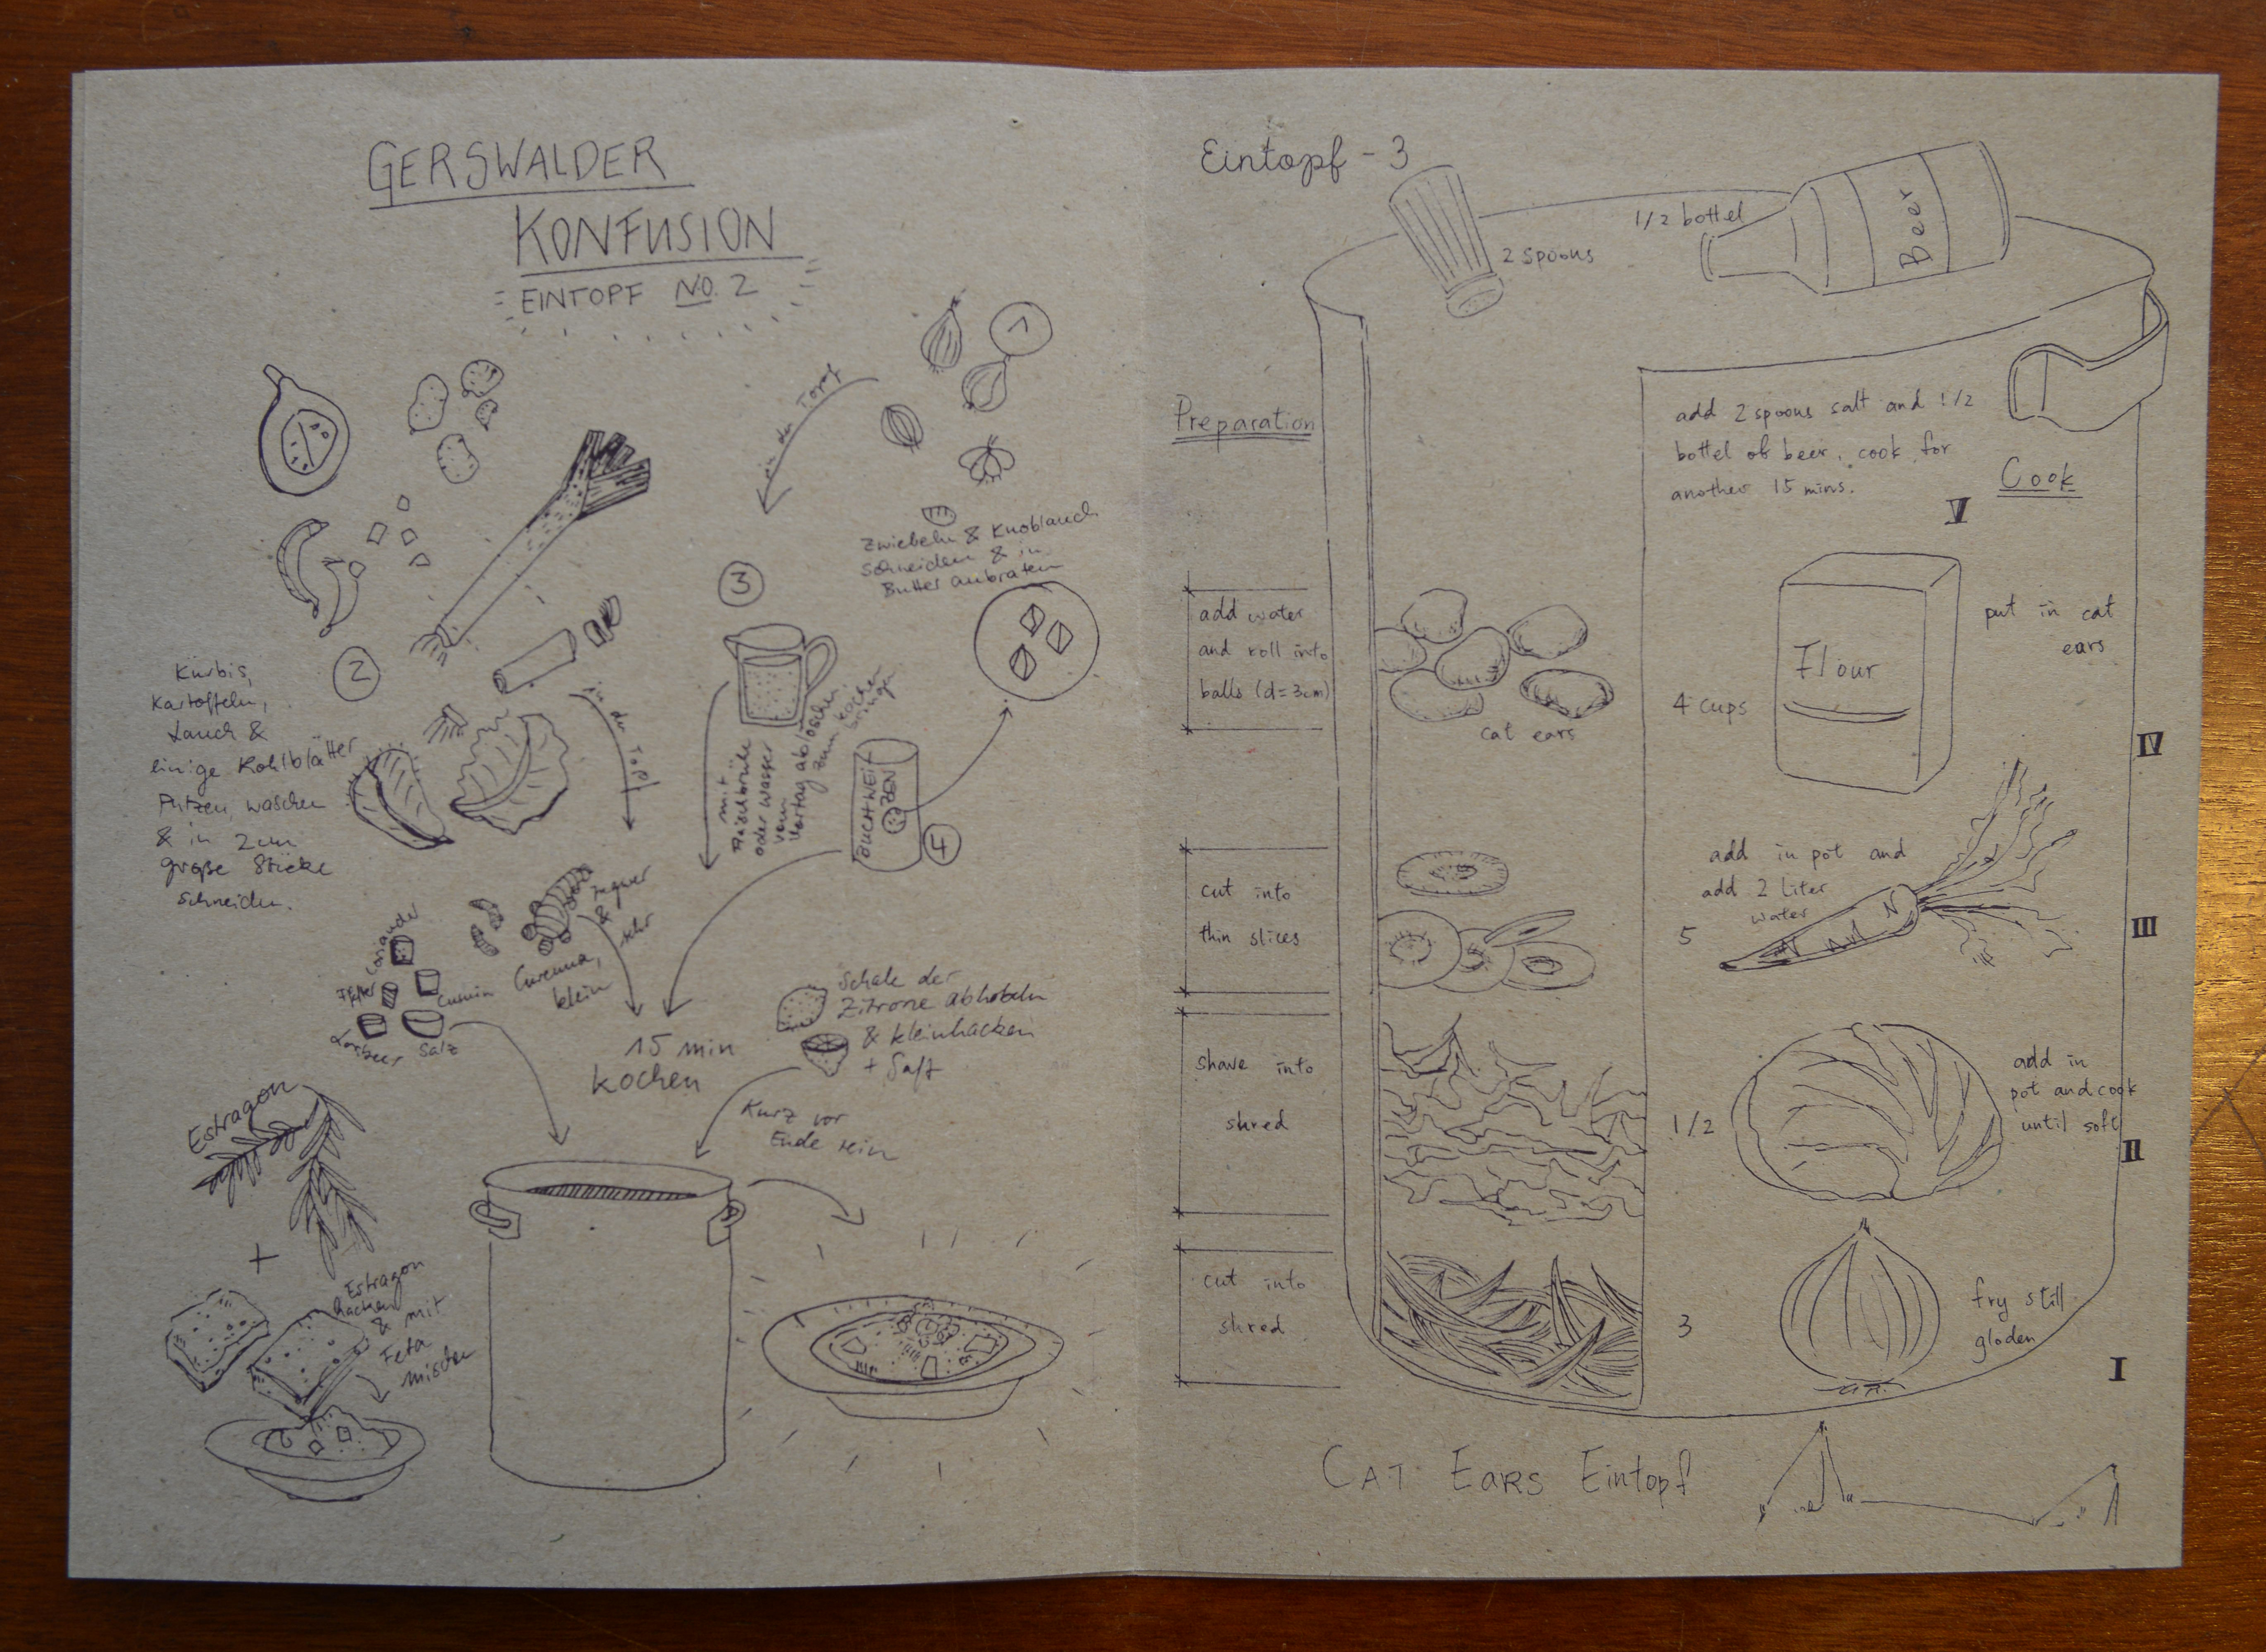 GERSWALDER
KONFUSION
EINTOPF NO. 2
1
in den Topf
Zwiebeln & Knoblauch
schneiden & in
Butter anbraten
2
Kürbis,
Kartoffeln,
Lauch &
einige Kohlblätter
Putzen, waschen
& in 2cm
große Stücke
schneiden.
in den Topf
3
mit
Fleischbrühe
oder Wasser
vom
Vortag ablöschen,
zum kochen
bringen
BUCHWEI
ZEN
4
Ingwer
&
sehr
Curcuma,
klein
Coriander
Pfeffer
Cumin
Lorbeer
Salz
15 min
kochen
Schale der
Zitrone abhobeln
& kleinhacken
+ Saft
Kurz vor
Ende rein
Estragon
+
Estragon
hacken
& mit
Feta
mischen
Eintopf - 3
2 spoons
1/2 bottel
Beer
Preparation
add 2 spoons salt and 1/2
bottel of beer, cook for
another 15 mins.
Cook
V
add water
and roll into
balls (d=3cm)
cat ears
4 cups
Flour
put in cat
ears
IV
cut into
thin slices
add in pot and
add 2 Liter
water
5
III
shave into
shred
1/2
add in
pot and cook
until soft
II
cut into
shred
3
fry still
gloden
I
CAT EARS Eintopf